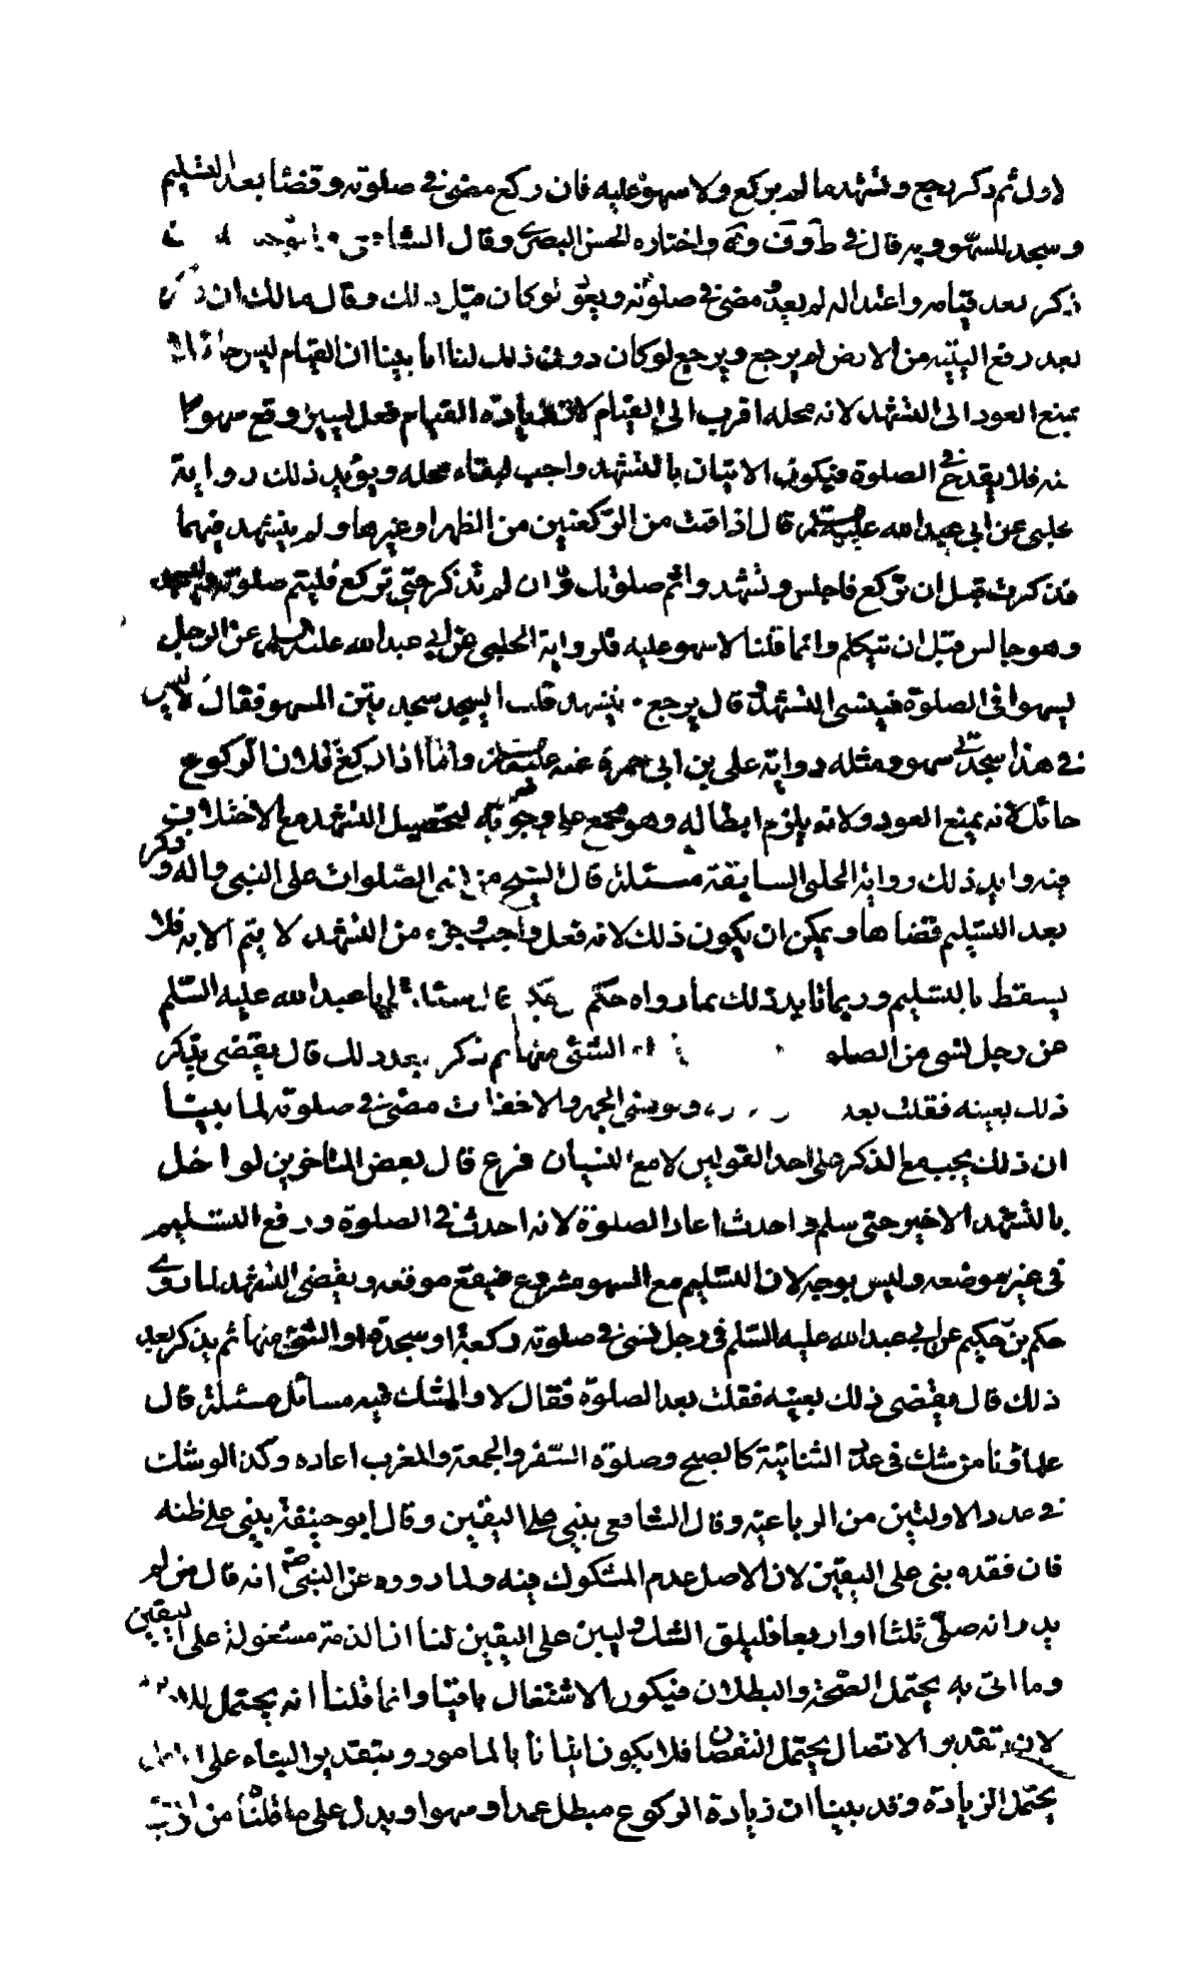 لاول ثم ذكر رجع وتشهد ما لم يركع ولا سهو عليه فان ركع مضى في صلوته وقضا بعد التسليم
وسجد للسهو وبه قال في ط وق واختاره الحسن البصري وقال الشافعي
ذكر بعد قيامه واعتداله لم يعد مضى في صلوته ويعود لو كان قبل ذلك وقال مالك ان
بعد رفع اليتيه من الارض لم يرجع ويرجع لو كان دون ذلك لنا اما بينا ان القيام ليس
يمنع العود الى التشهد لانه محله اقرب الى القيام لان زيادة القيام فعل يسير وقع سهوا
نه فلا يقدح في الصلوة فيكون الاتيان بالتشهد واجب لبقاء محله ويؤيد ذلك رواية
حلبي عن ابي عبد الله عليه السلم قال اذا قمت من الركعتين من الظهر او غيرها ولم يتشهد فيهما
فذكرت قبل ان تركع فاجلس وتشهد واتم صلوتك وان لم تذكر حتى تركع فليتم صلوته
وهو جالس قبل ان تتكلم وانما قلنا لا سهو عليه فلرواية الحلبي عن ابي عبد الله عليه السلم عن الرجل
يسهوا في الصلوة فينسى التشهد قال يرجع يتشهد قلت ايسجد سجدتين السهو فقال لا ليس
في هذا سجدتي سهو ومثله رواية علي بن ابي حمزة عنه عليه السلم واما اذا ركع فلان الركوع
حائل لانه يمنع العود ولانه يلزم ابطاله وهو مجمع على وجوبه لتحصيل التشهد مع الاختلاف
فيه وايد ذلك رواية الحلبي السابقة مسئلة قال الشيخ من الصلوات على النبي واله وذكر
بعد التسليم قضاها ويمكن ان يكون ذلك لانه فعل واجب وجزء من التشهد لا يتم الا به فلا
يسقط بالتسليم وربما تايد ذلك بما رواه حكم بن حكيم قال سئلت ابا عبد الله عليه السلم
عن رجل نسي من الصلو الشئ منها ثم ذكر بعد ذلك قال يقضي بتكر
ذلك بعينه فقلت بعد ولو نسي الجهر والاخفات مضى في صلوته لما بينا
ان ذلك يجب مع الذكر على احد القولين لا مع النسيان فرع قال بعض المتاخرين لو اخل
بالتشهد الاخير حتى سلم واحدث اعاد الصلوة لانه احدث في الصلوة ورفع التسليم
في غير موضعه وليس بوجه لان التسليم مع السهو مشروع فيقع موقعه ويقضي التشهد لما روى
حكم بن حكيم عن ابي عبد الله عليه السلم في رجل نسي في صلوته ركعة او سجدة او الشئ منها ثم يذكر بعد
ذلك قال يقضي ذلك بعينه فقلت بعد الصلوة فقال لا والشك فيه مسائل مسئلة قال
علماؤنا من شك في عدد الثنائية كالصبح وصلوة السفر والجمعة والمغرب اعاده وكذا لو شك
في عدد الاولتين من الرباعية وقال الشافعي يبني على اليقين وقال ابو حنيفة يبني على ظنه
فان فقده بنى على اليقين لان الاصل عدم المشكوك فيه ولما رووه عن النبي ص انه قال من لم
يدر انه صلى ثلثا او اربعا فليلق الشك وليبن على اليقين لنا ان الذمة مستغولة على اليقين
وما اتى به يحتمل الصحة والبطلان فيكون الاشتغال باقيا وانما قلنا انه يحتمل
لان تقدير الاتصال يحتمل النقصان فلا يكون اتيانا بالمامور وبتقدير البناء على
يحتمل الزيادة وقد بينا ان زيادة الركوع مبطل عمدا وسهوا ويدل على ما قلنا من